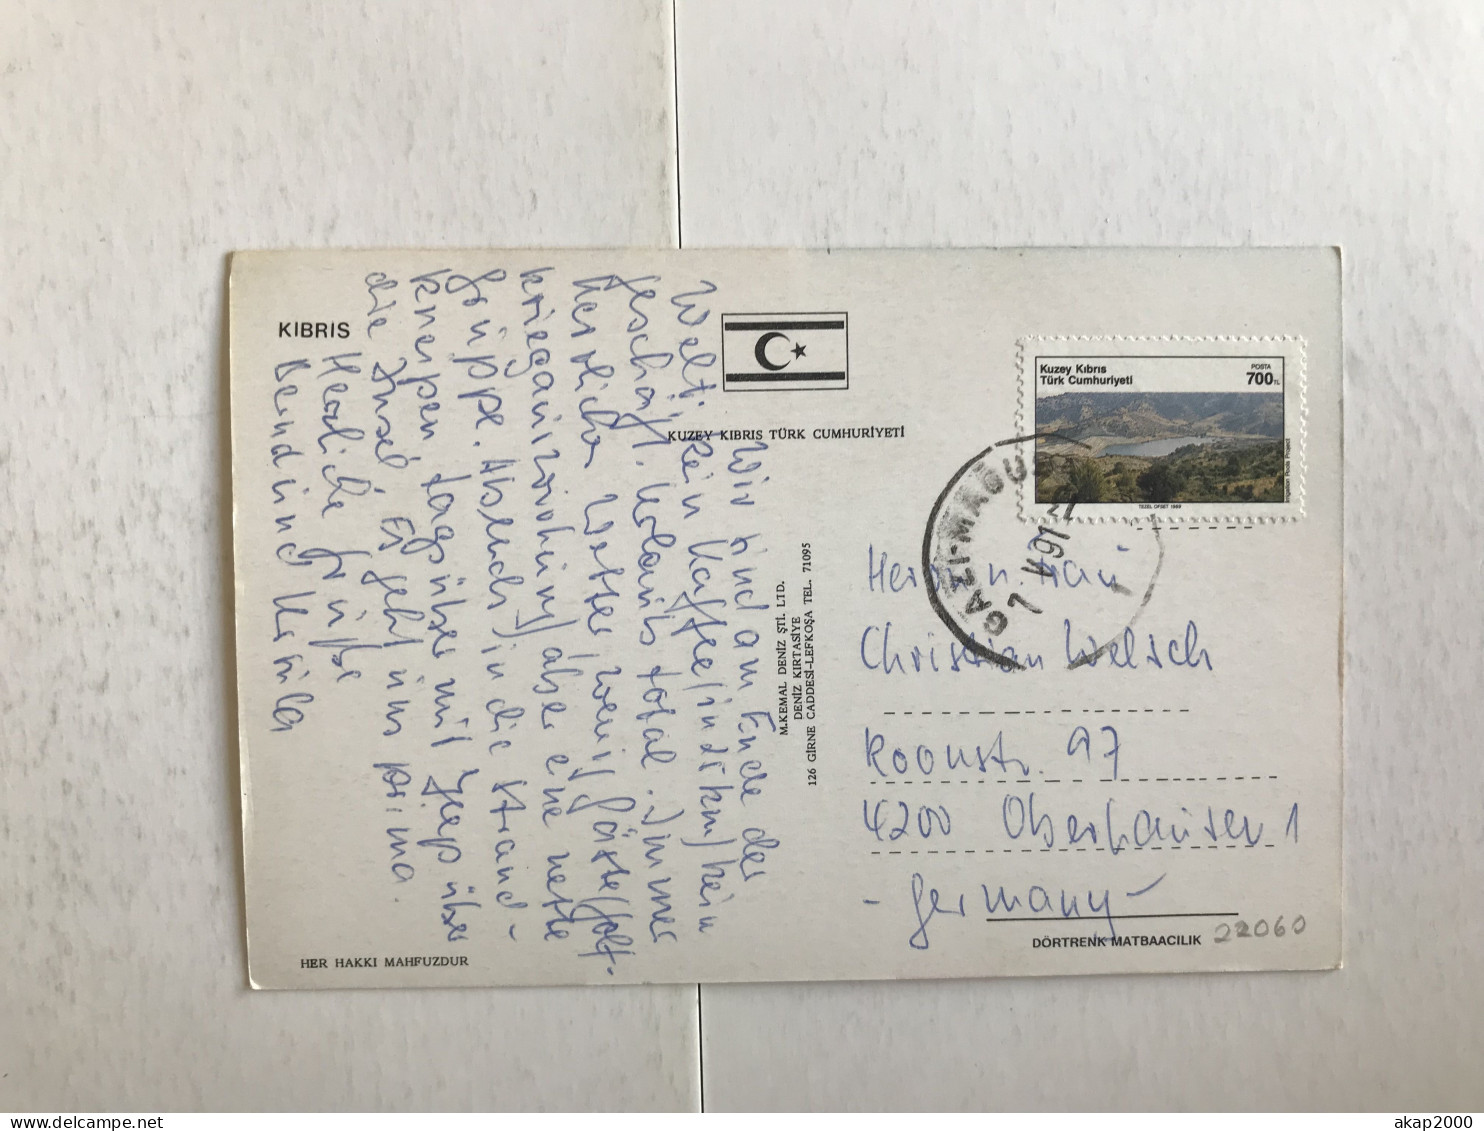 KIBRIS
KUZEY KIBRIS TÜRK CUMHURİYETİ
Kuzey Kıbrıs
Türk Cumhuriyeti
POSTA
700TL
TEZEL OFSET 1989
GAZİ-MAĞU
Wir sind am Ende der
Welt, kein Kaffee, kein
geschäft. Urlaub total. Immer
herrliches Wetter, wenig Gäste,
aber eine nette
gruppe. Abends in die Strand-
kneipen, tagsüber mit Jeep über
die Insel. Es geht uns prima.
Herzliche grüße
Bernd und Ursula
M.KEMAL DENİZ ŞTİ. LTD.
DENİZ KIRTASİYE
126 GİRNE CADDESİ-LEFKOŞA TEL. 71095
Herrn u. Frau
Christian Welsch
Roonstr. 97
4200 Oberhausen 1
- Germany -
DÖRTRENK MATBAACILIK
22060
HER HAKKI MAHFUZDUR
delcampe.net
akap2000